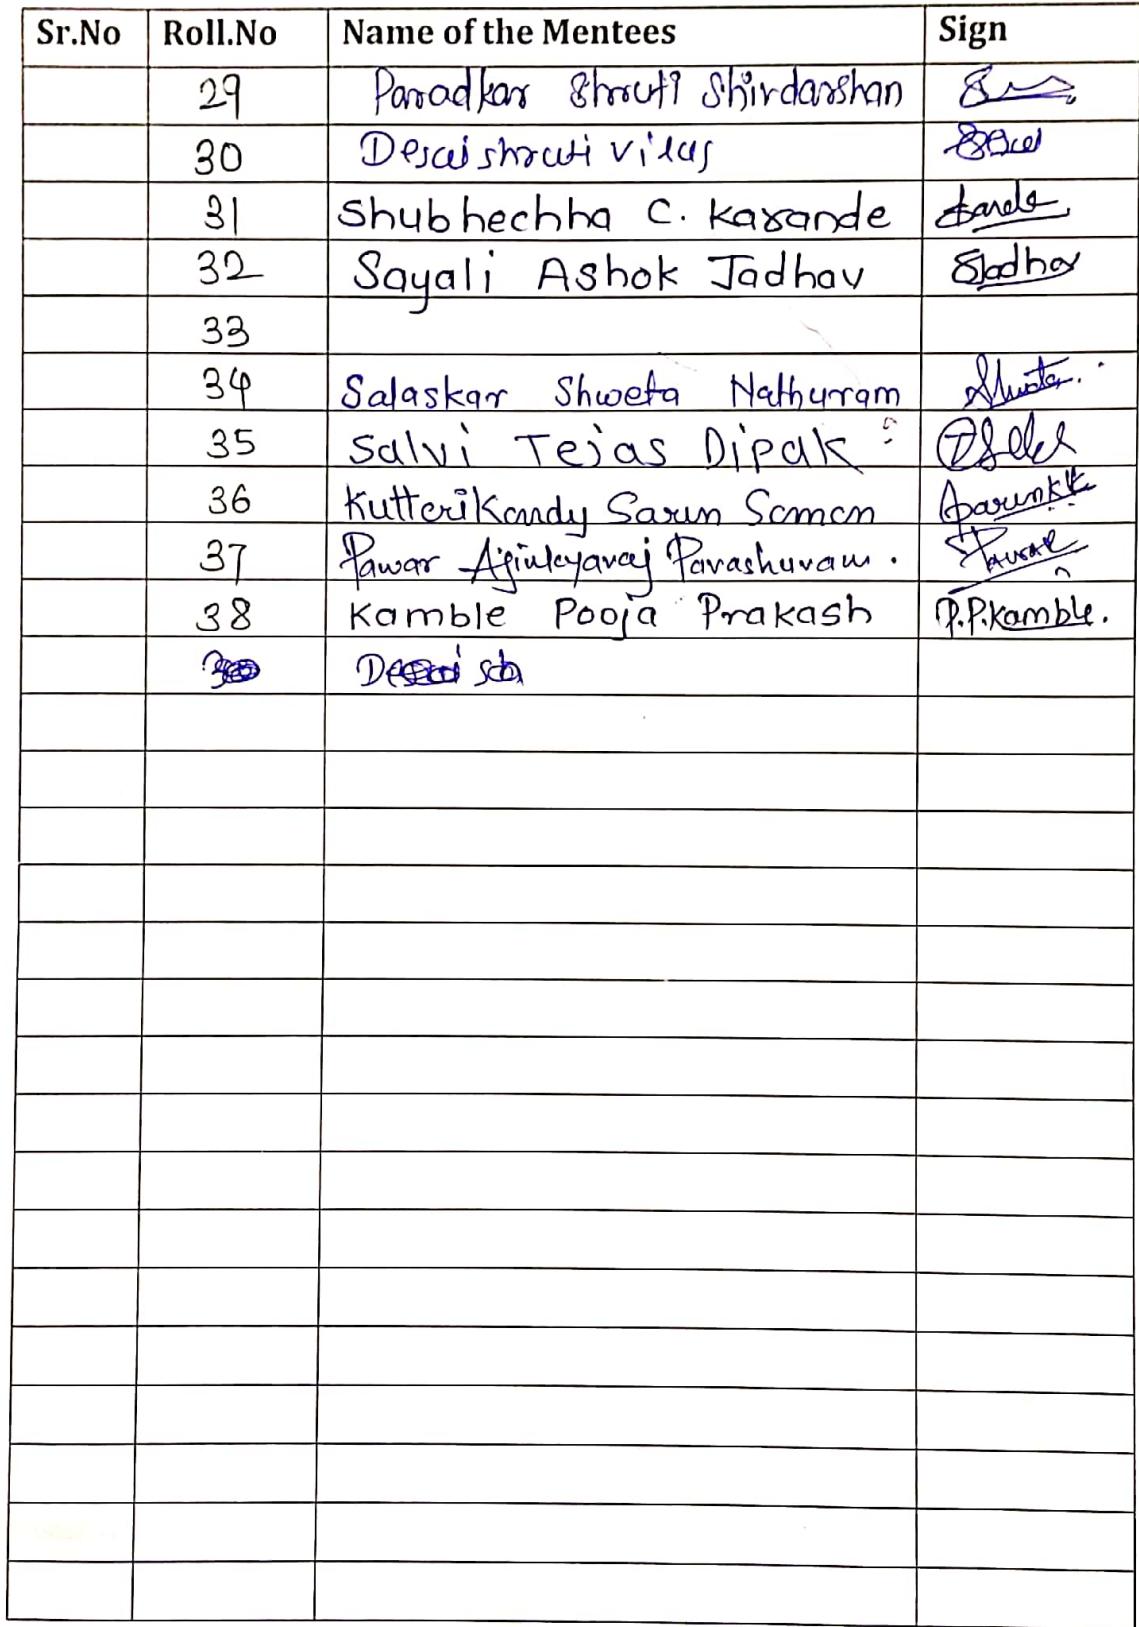 Sr.No Roll.No Name of the Mentees Sign
29 Paradkar Shruti Shirdarshan
30 Desai shruti vilas
31 Shubhechha C. Karande
32 Sayali Ashok Jadhav SJadhav
33
34 Salaskar Shweta Nathuram Shweta
35 Salvi Tejas Dipak
36 Kutterikandy Sarun Saman Sarunkk
37 Pawar Parashuram. Pawar
38 Kamble Pooja Prakash P.P.Kamble.